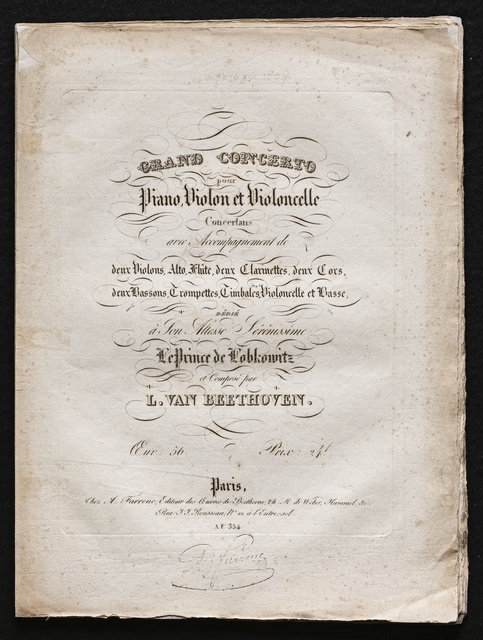 GRAND CONCERTO
pour
Piano, Violon et Violoncelle
Concertans
avec Accompagnement de
deux Violons, Alto, Flûte, deux Clarinettes, deux Cors,
deux Bassons, Trompettes, Timbales, Violoncelle et Basse,
DÉDIÉ
à Son Altesse Sérénissime
Le Prince de Lobkowitz
et Composé par
L. VAN BEETHOVEN.
Œuv: 56 Prix: 24f
Paris,
Chez A. Farrenc, Editeur des Œuvres de Beethoven, Ch. M. de Weber, Hummel, &c.
Rue J. J. Rousseau, No. 11, à l'Entre-sol.
A F 354
A. Farrenc